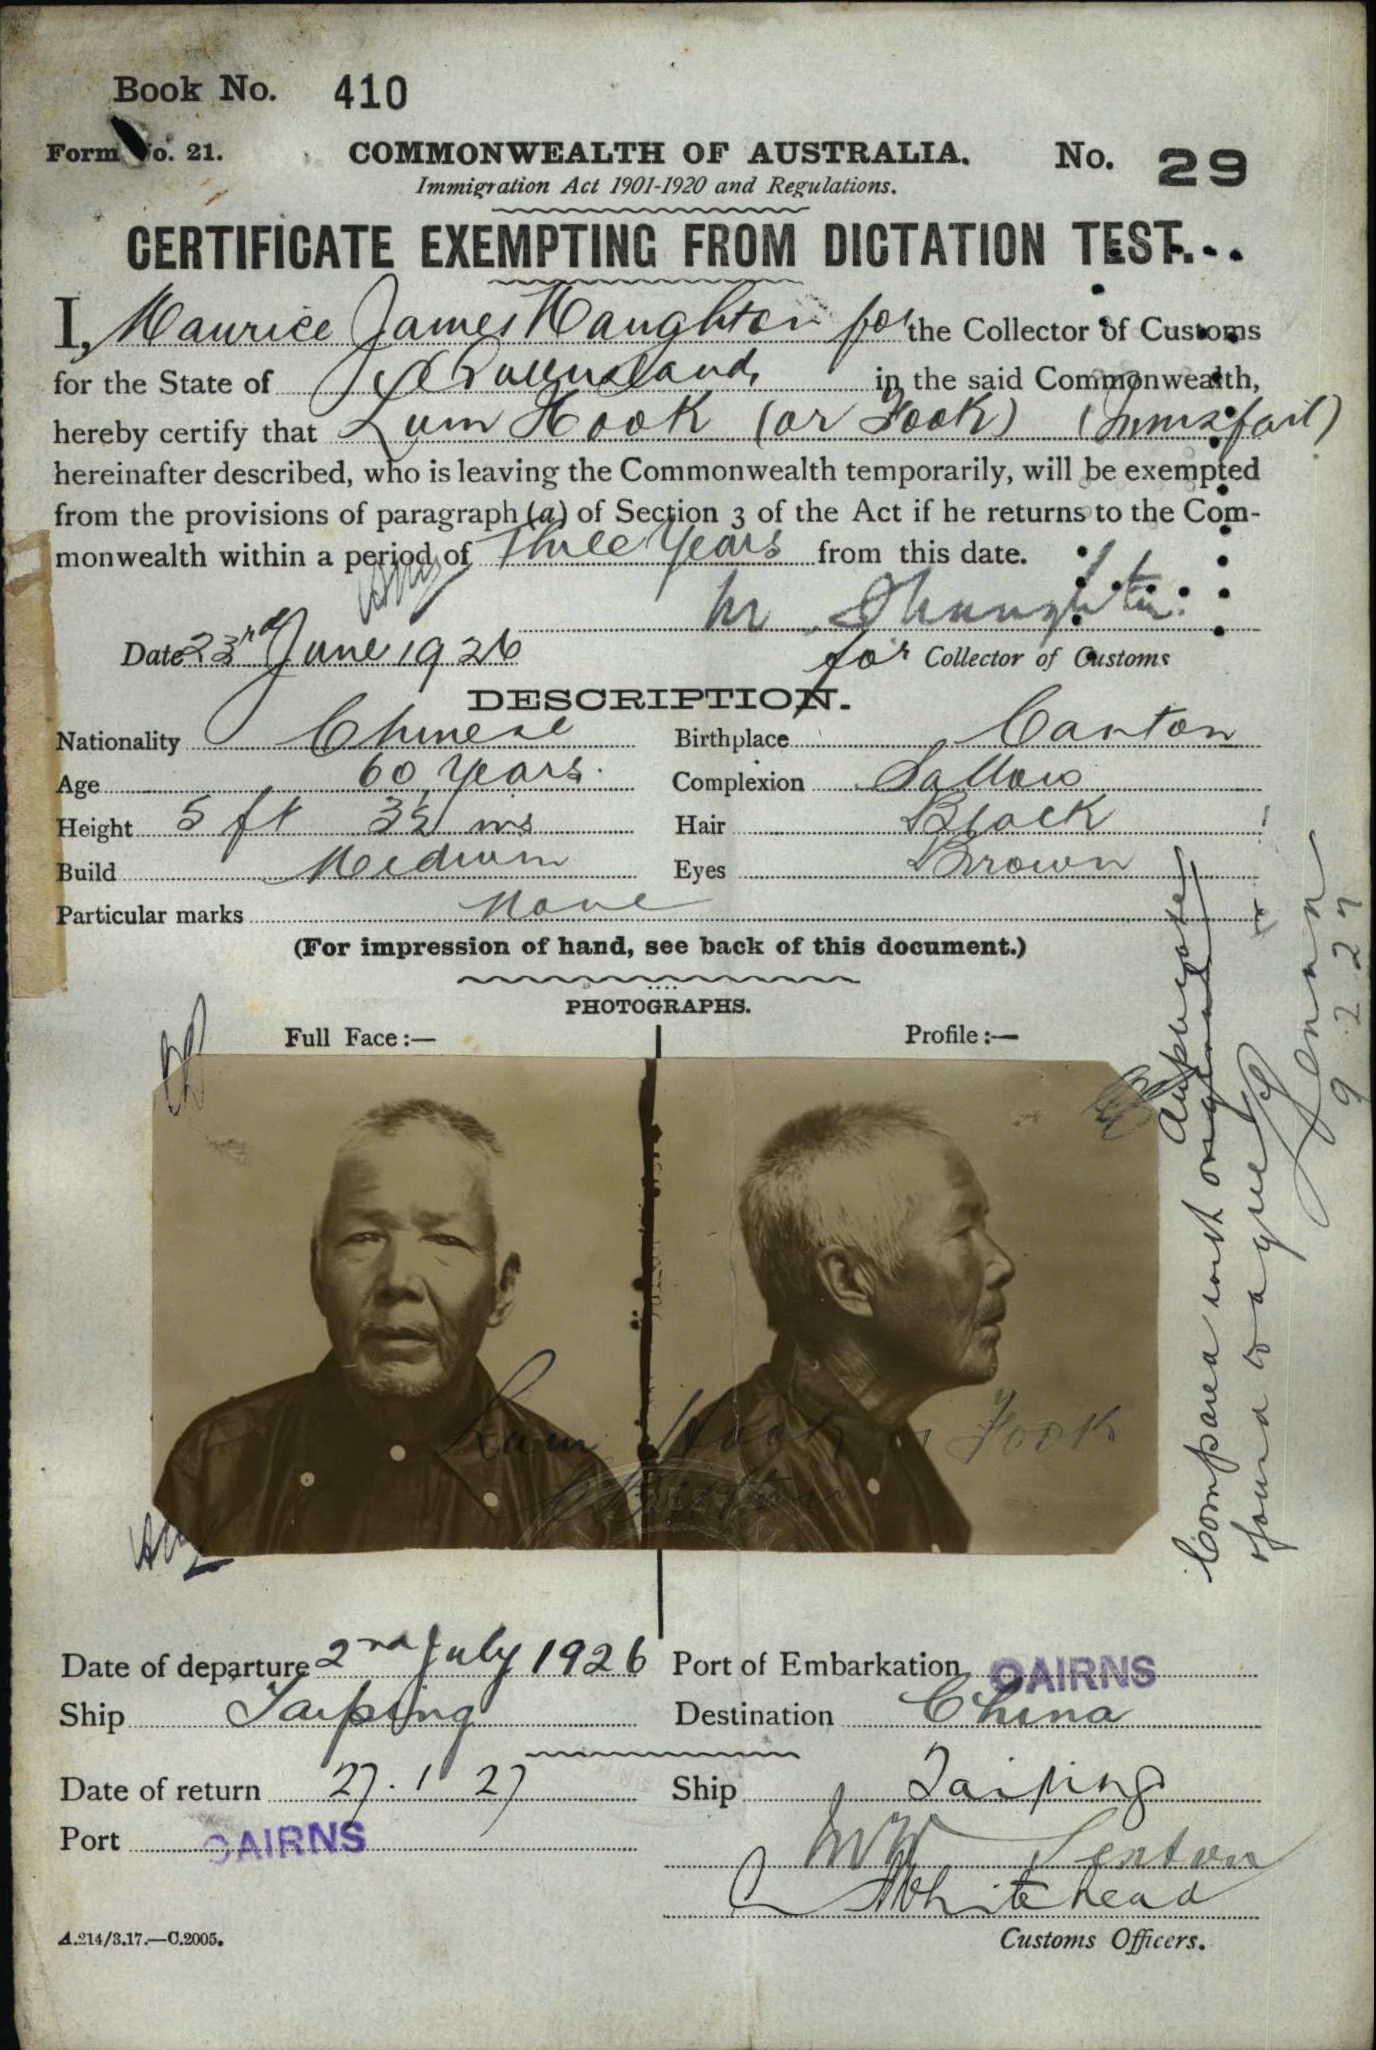 Book No. 410
Form No. 21. COMMONWEALTH OF AUSTRALIA. No. 29
Immigration Act 1901-1920 and Regulations.
CERTIFICATE EXEMPTING FROM DICTATION TEST.
I, Maurice James Naughton for the Collector of Customs
for the State of Queensland, in the said Commonwealth,
hereby certify that Lum Hook (or Fook) (Innisfail)
hereinafter described, who is leaving the Commonwealth temporarily, will be exempted
from the provisions of paragraph (a) of Section 3 of the Act if he returns to the Com-
monwealth within a period of Three Years from this date.
Date 23rd June 1926
for Collector of Customs
DESCRIPTION.
Nationality Chinese Birthplace Canton
Age 60 Years. Complexion Sallow
Height 5 ft 3½ ins Hair Black
Build Medium Eyes Brown
Particular marks None
(For impression of hand, see back of this document.)
PHOTOGRAPHS.
Full Face:— Profile:—
Lum Hook or Fook
Compared with original duplicate
found to agree
9.2.27
Date of departure 2nd July 1926 Port of Embarkation CAIRNS
Ship Taiping Destination China
Date of return 27.1 27 Ship Taiping
Port CAIRNS
Whitehead
A.214/3.17.—C.2005. Customs Officers.